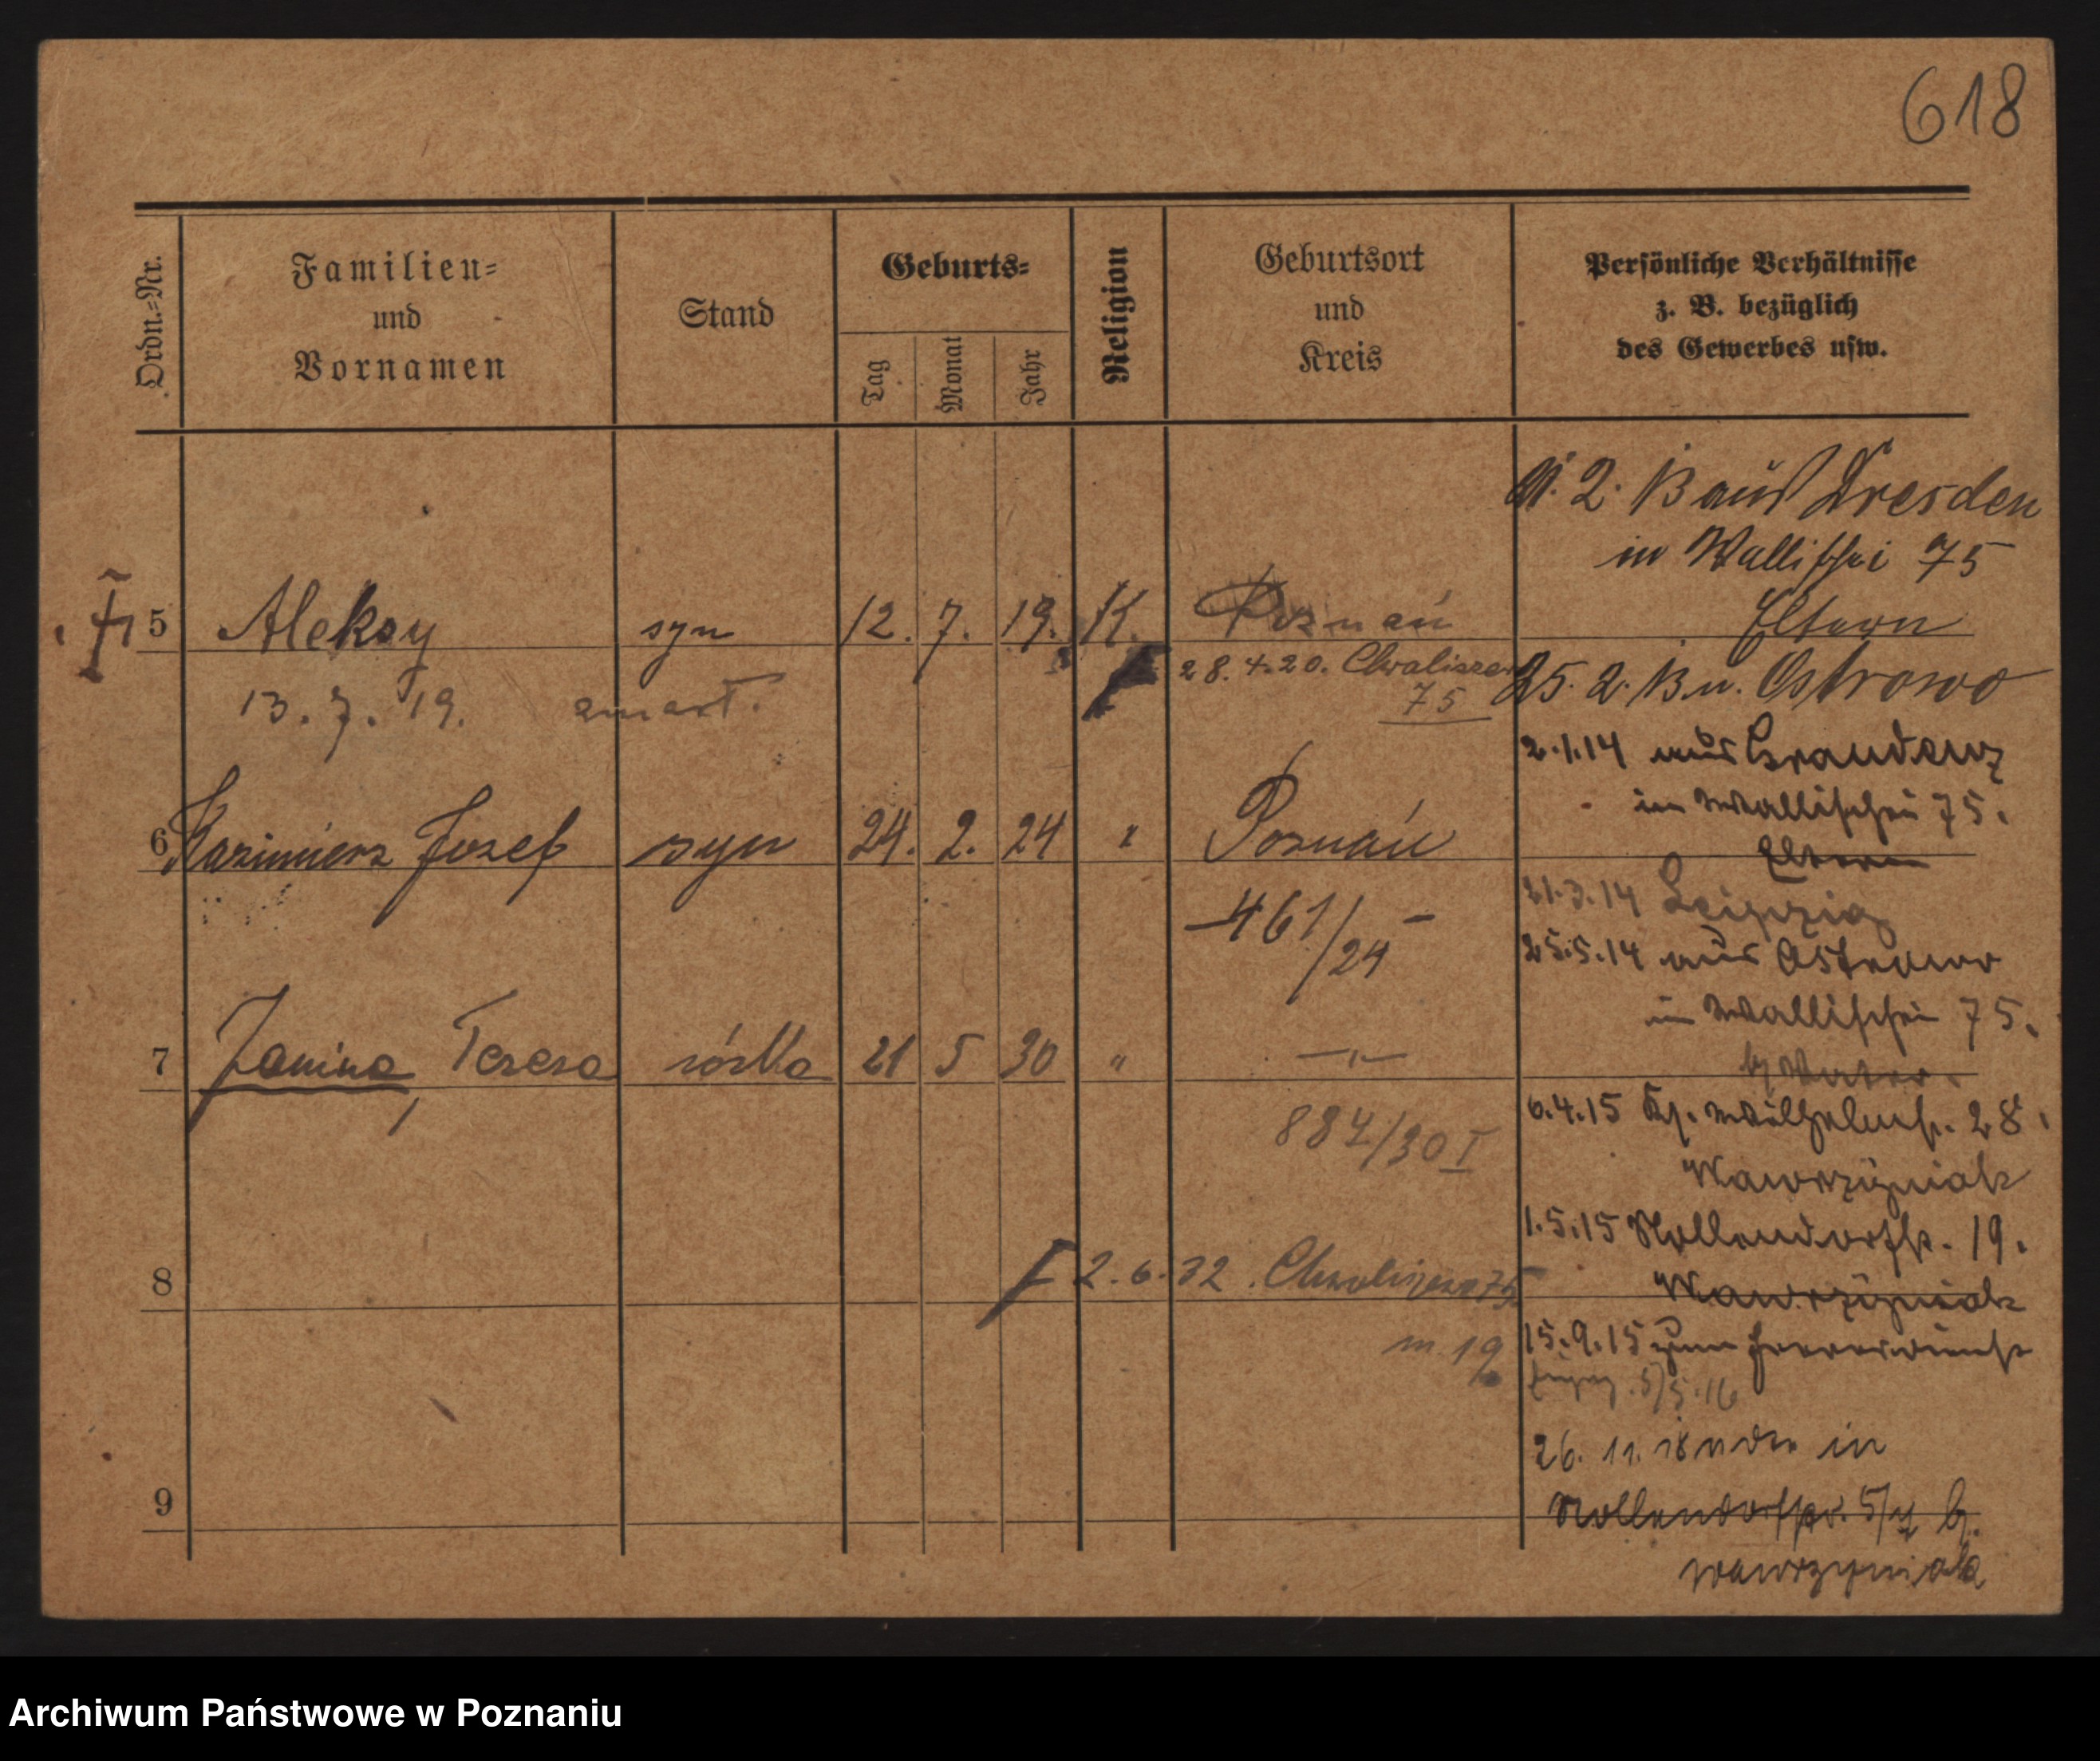 618
Ordn.-Nr.
Familien-
und
Vornamen
Stand
Geburts-
Tag
Monat
Jahr
Religion
Geburtsort
und
Kreis
Persönliche Verhältnisse
z. B. bezüglich
des Gewerbes usw.
5 Aleksy syn 12. 7. 19. K. Poznań
13. 7. 19. zmarł.
28. 4. 20. Chwaliszewo
75
6 Kazimierz Józef syn 24. 2. 24 " Poznań
461/24
7 Janina, Teresa córka 21 5 30 " —"—
884/30 I
8
2. 6. 32. Chwaliszewo 75
m. 19
9
2. 13 aus Dresden
in Wallischei 75
Eltern
25. 2. 13 n. Ostrowo
2.1.14 aus Graudenz
in Wallischei 75.
Eltern
21.3.14 Leipzig
25.5.14 aus Ostrowo
in Wallischei 75.
b/ Vater.
6.4.15 Kp. Wilhelmstr. 28.
Wawrzyniak
1.5.15 Nollendorfstr. 19.
Wawrzyniak
15.9.15 zum Heeresdienst
5/5.16
26. 11. 18 in
Nollendorfstr. b.
Wawrzyniak
Archiwum Państwowe w Poznaniu